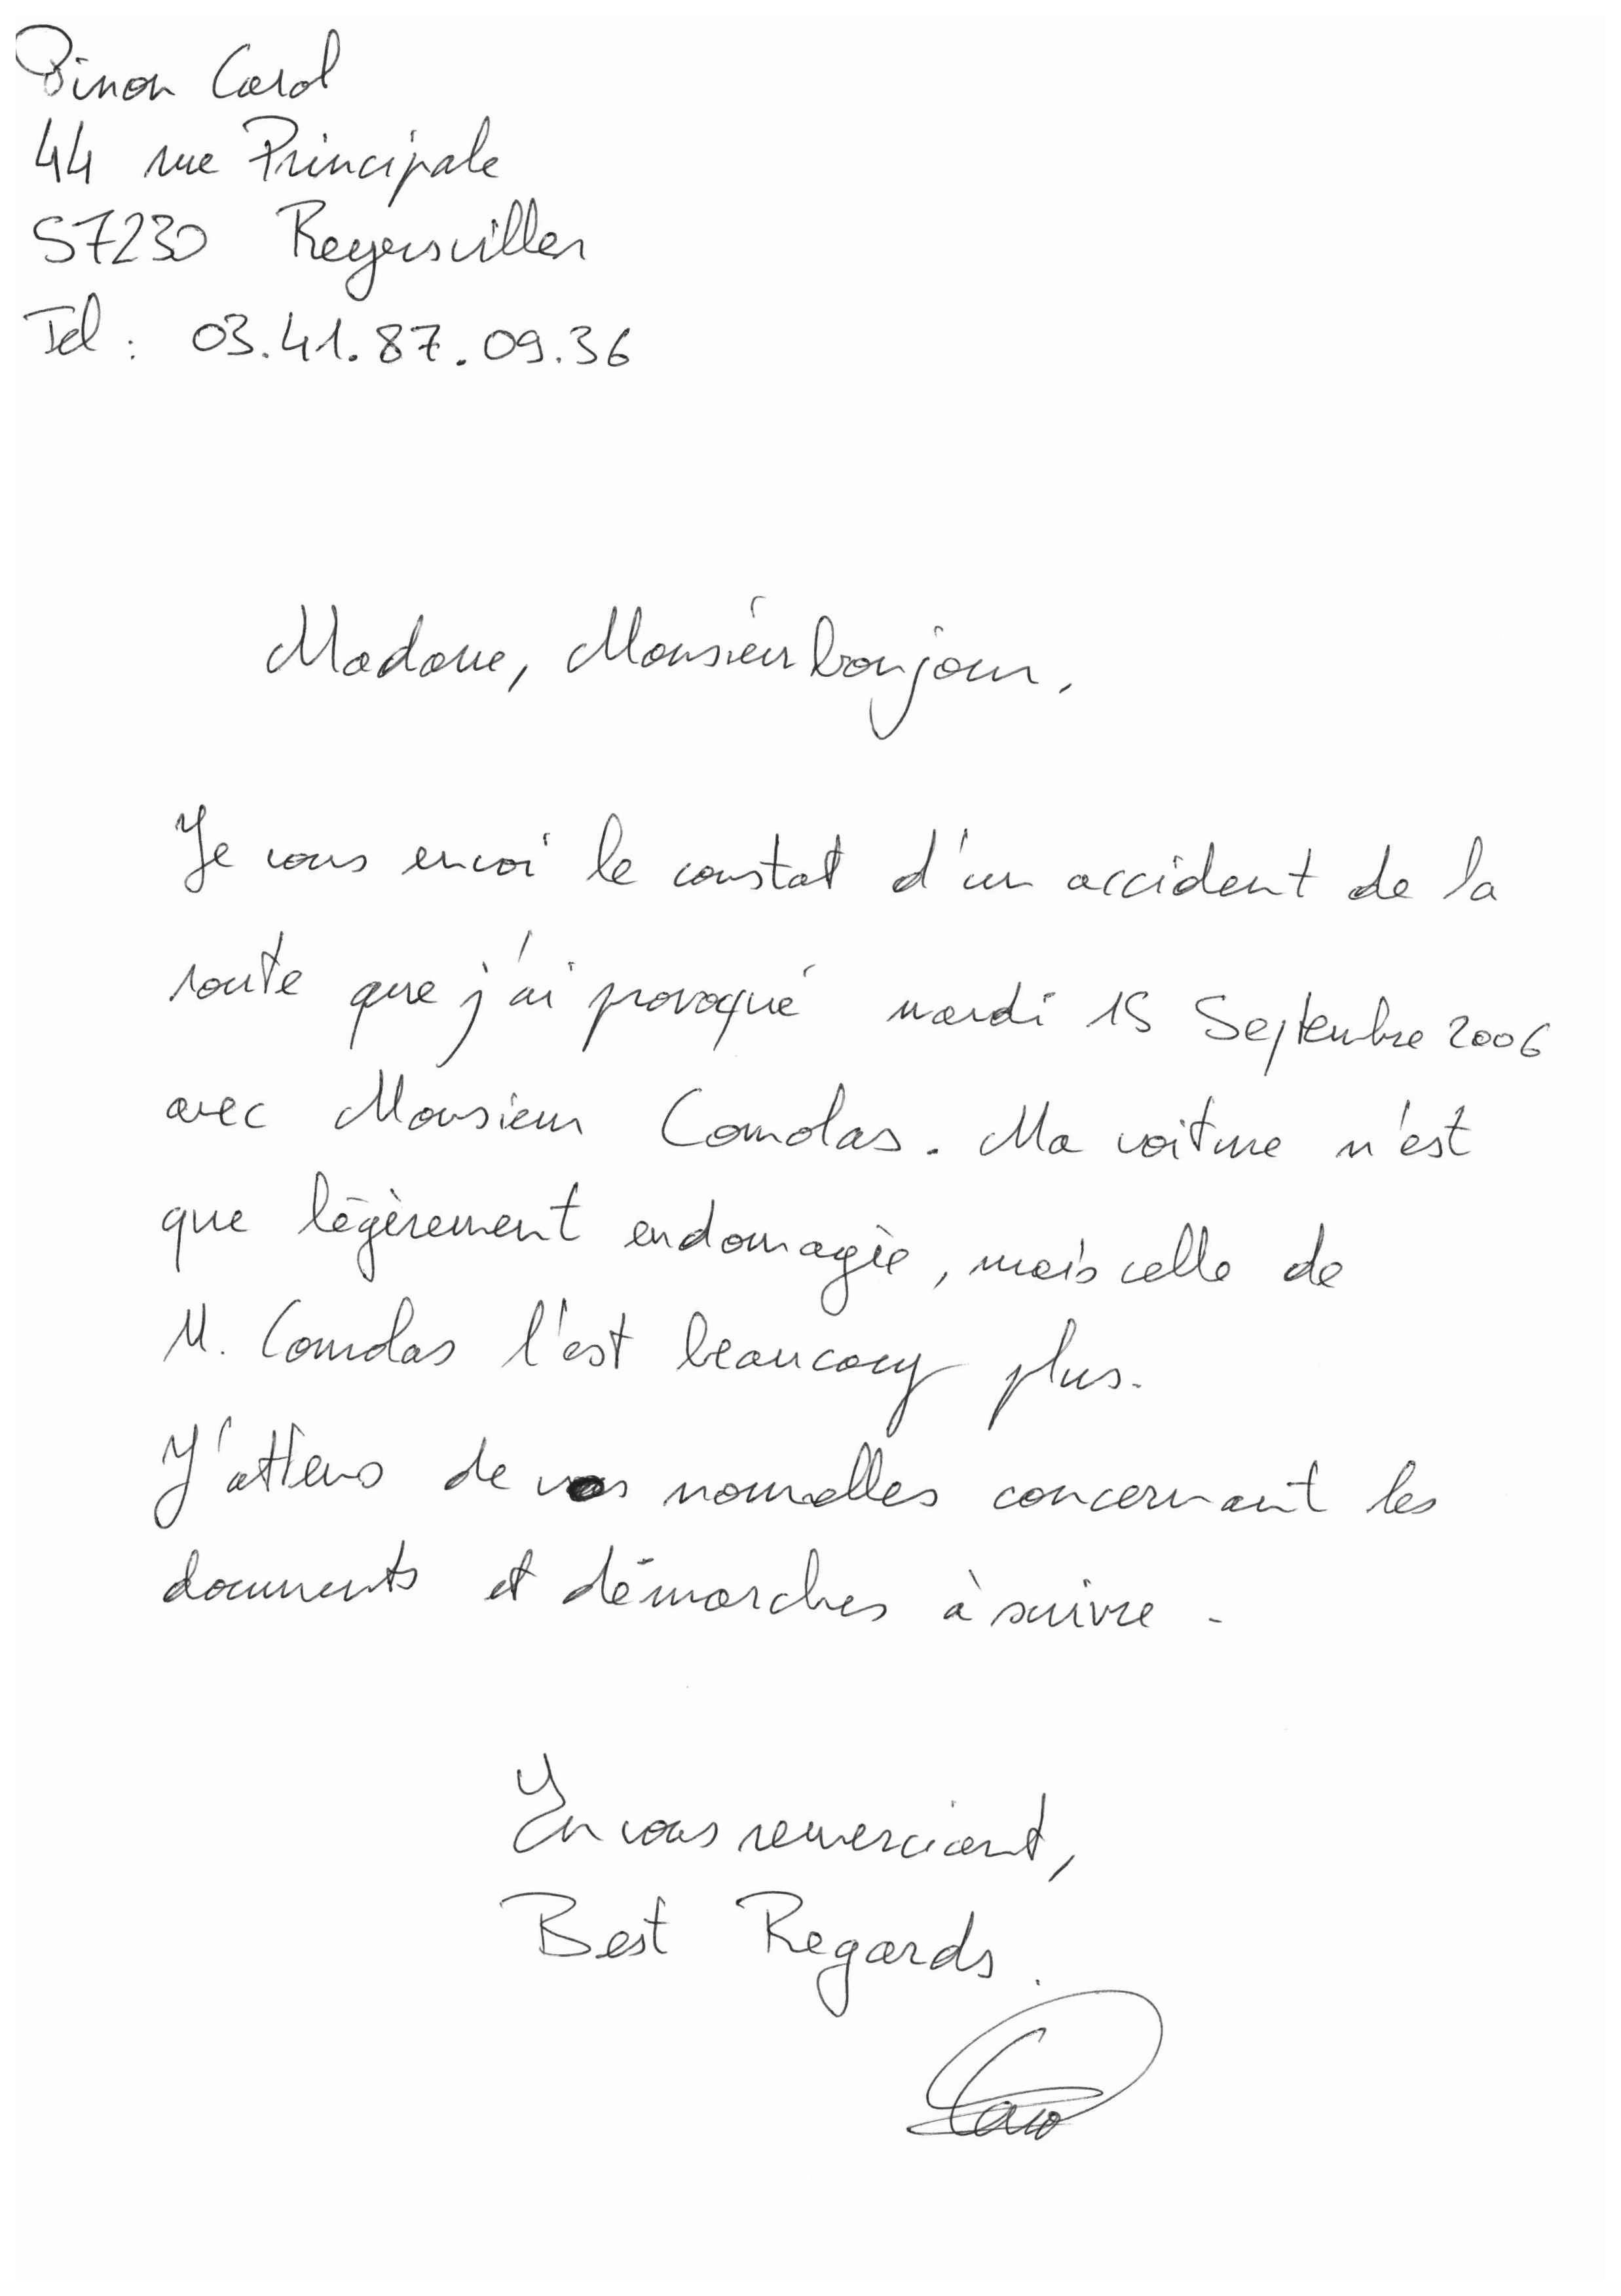 Pinon Carol
44 rue Principale
57230 Reyersviller
Tel : 03.41.87.09.36
Madame, Monsieur bonjour,
Je vous envoi le constat d'un accident de la
route que j'ai provoqué mardi 15 Septembre 2006
avec Monsieur Comolas. Ma voiture n'est
que légèrement endomagée, mais celle de
M. Comolas l'est beaucoup plus.
J'attens de vos nouvelles concernant les
documents et démarches à suivre.
En vous remerciant,
Best Regards.
Caro